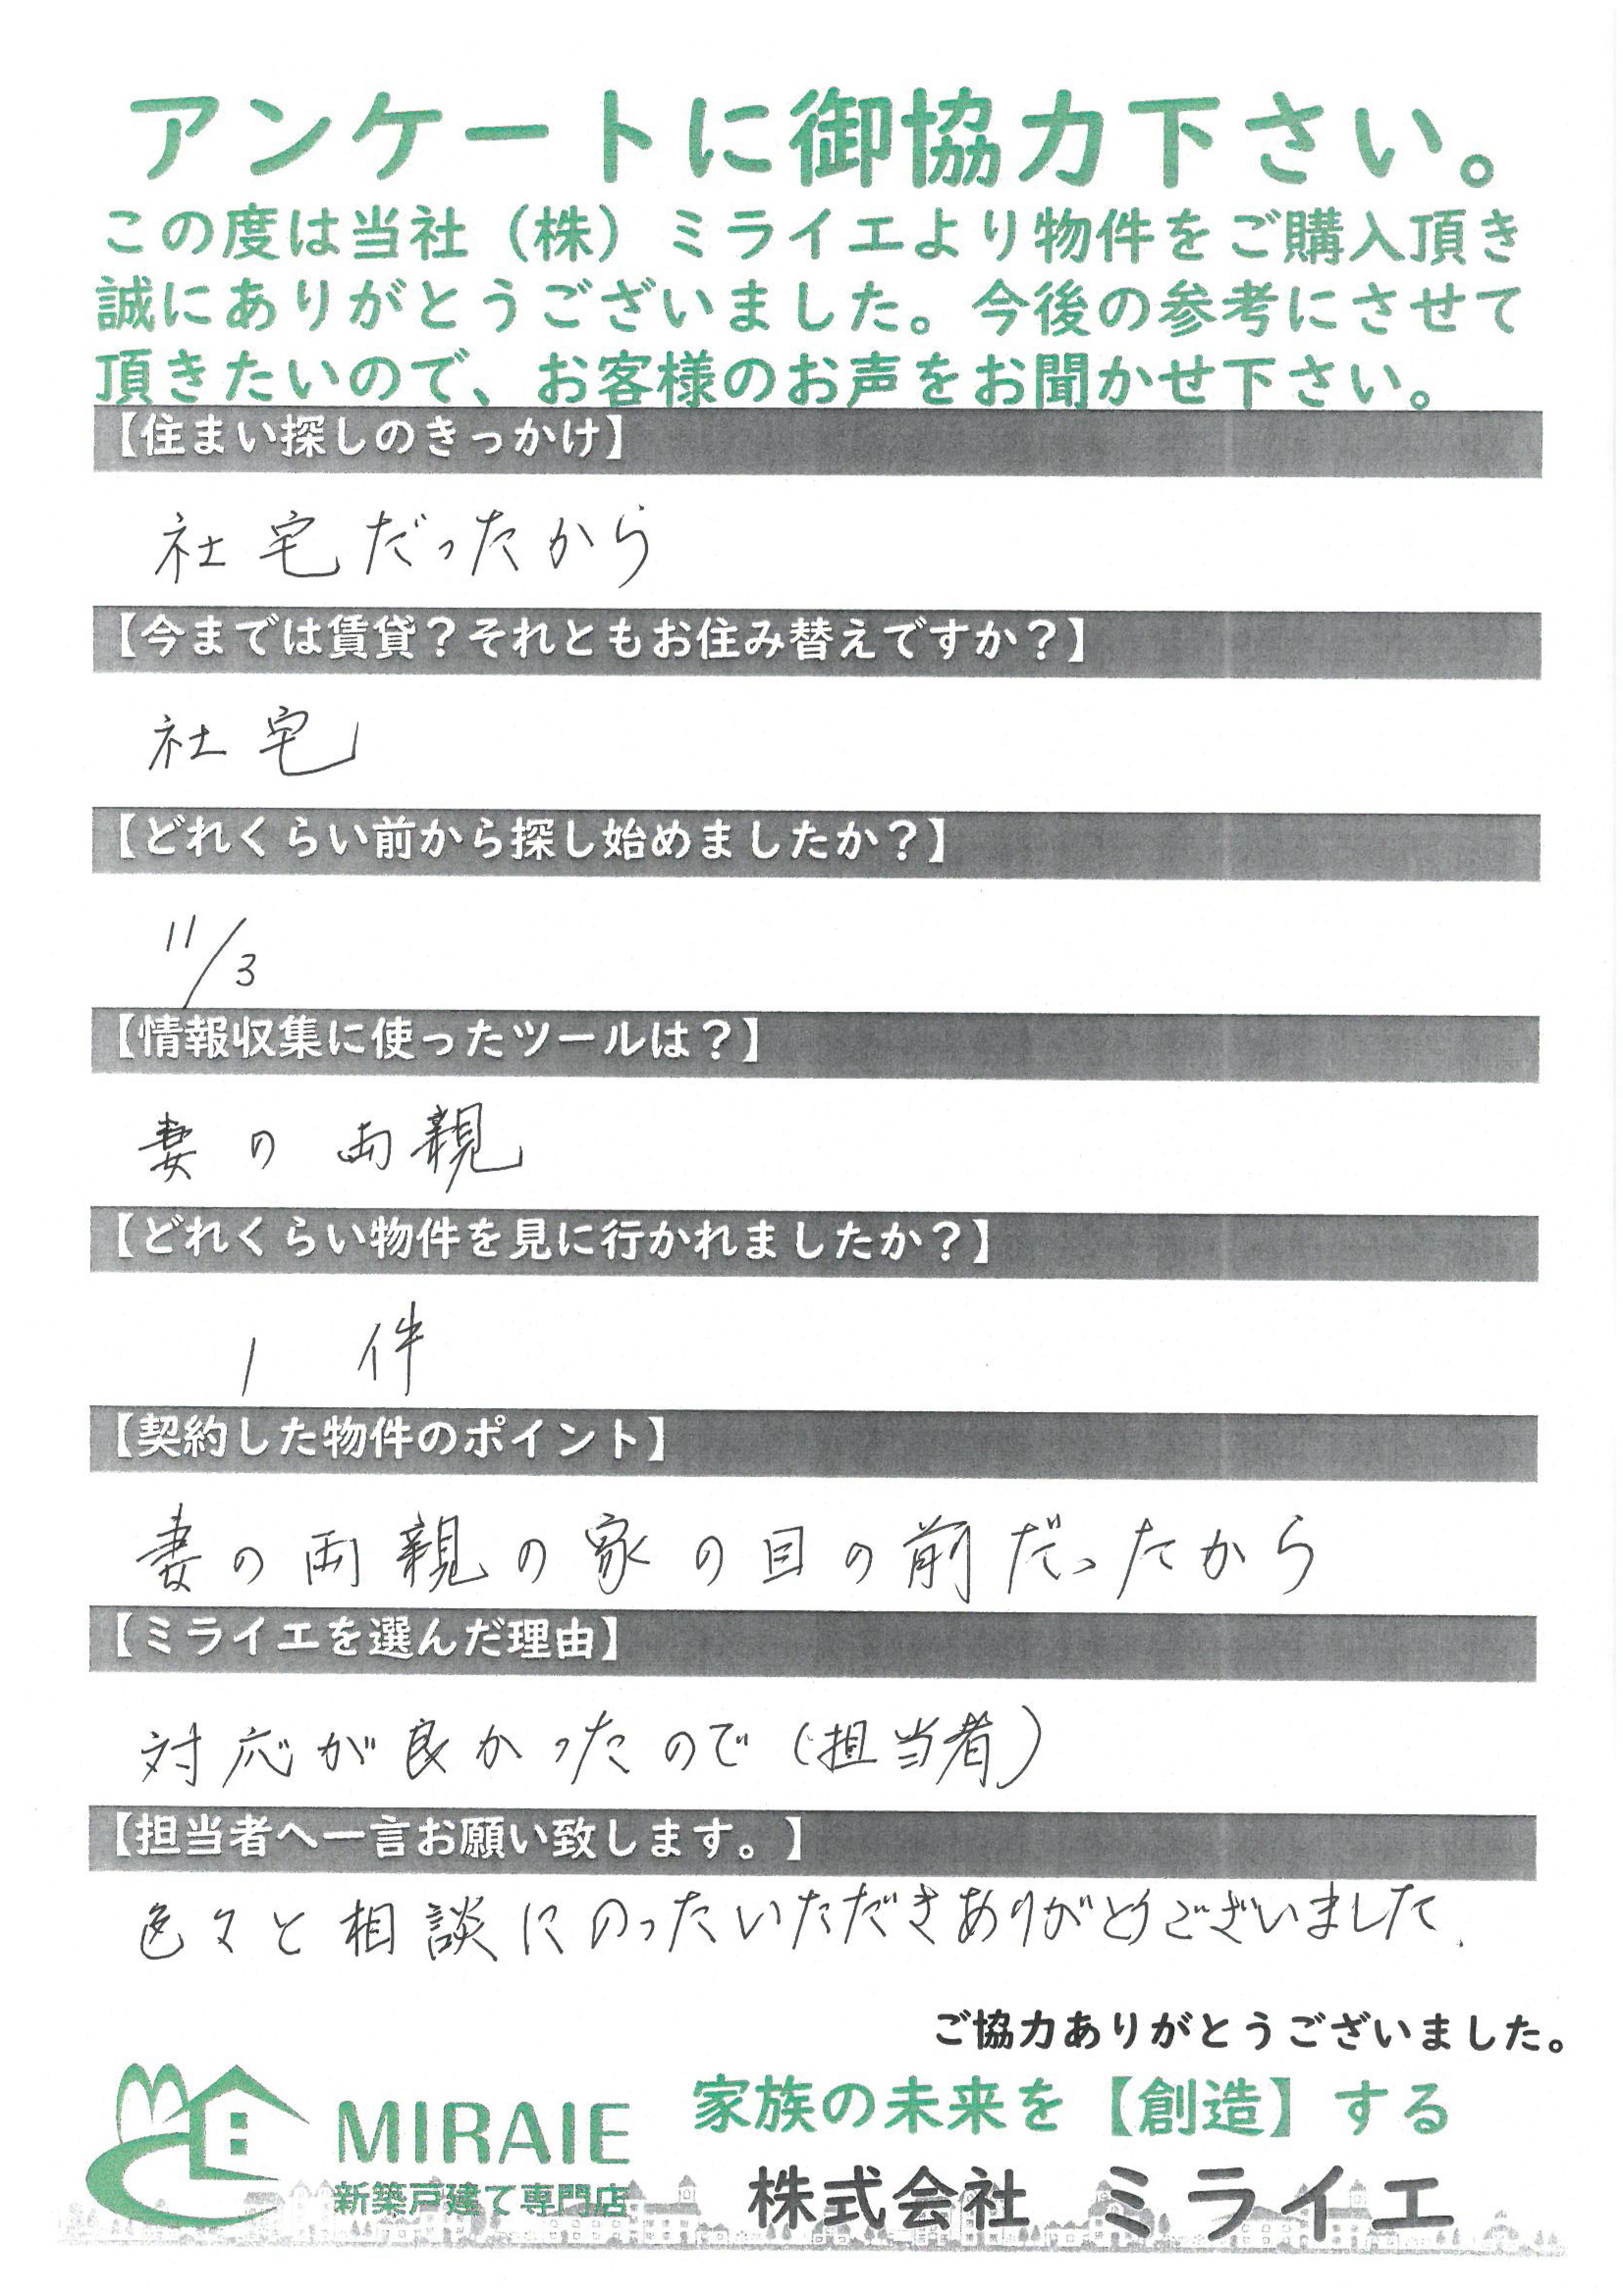 アンケートに御協力下さい。
この度は当社（株）ミライエより物件をご購入頂き
誠にありがとうございました。今後の参考にさせて
頂きたいので、お客様のお声をお聞かせ下さい。
【住まい探しのきっかけ】
社宅だったから
【今までは賃貸？それともお住み替えですか？】
社宅
【どれくらい前から探し始めましたか？】
11/3
【情報収集に使ったツールは？】
妻の両親
【どれくらい物件を見に行かれましたか？】
1件
【契約した物件のポイント】
妻の両親の家の目の前だったから
【ミライエを選んだ理由】
対応が良かったので（担当者）
【担当者へ一言お願い致します。】
色々と相談にのったいただきありがとうございました.
ご協力ありがとうございました。
家族の未来を【創造】する
MIRAIE
新築戸建て専門店
株式会社 ミライエ